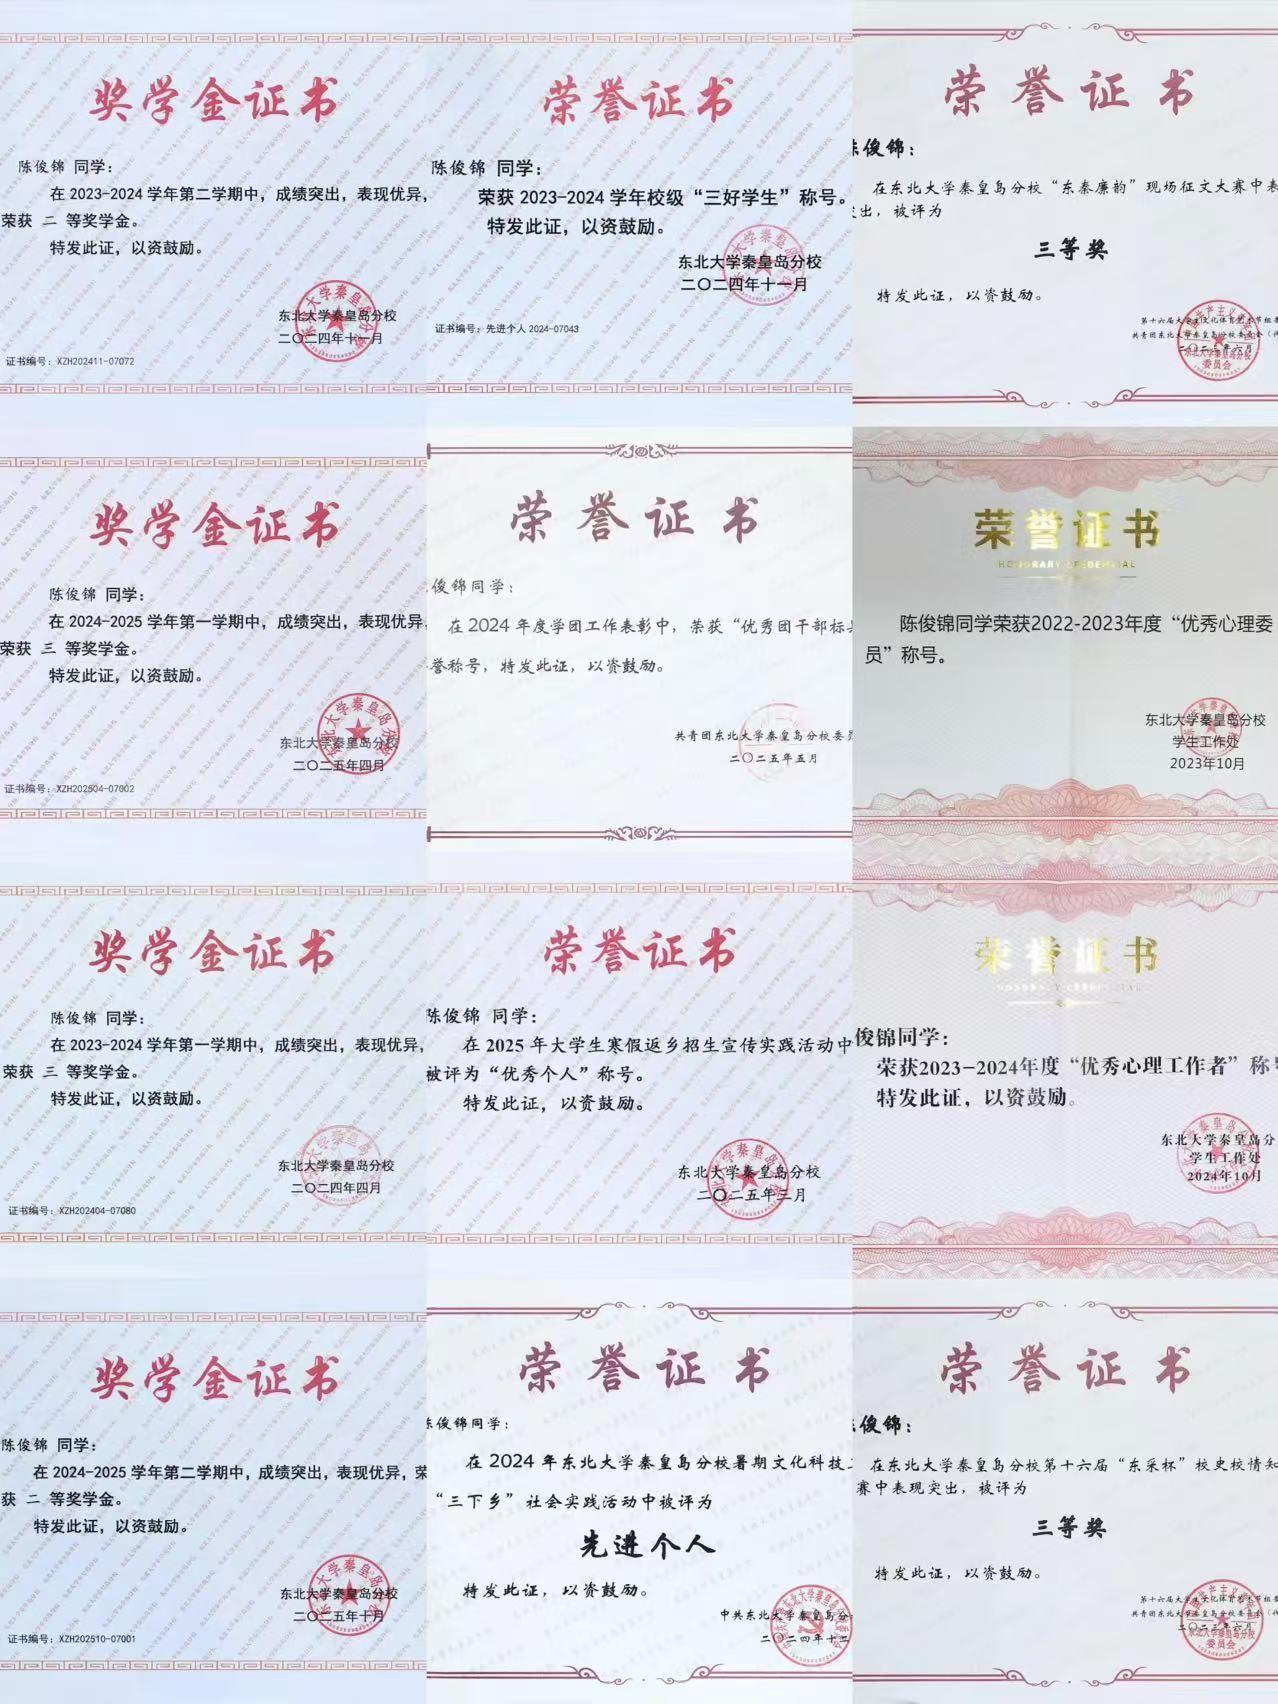 奖学金证书
陈俊锦 同学：
在 2023-2024 学年第二学期中，成绩突出，表现优异，
荣获 二 等奖学金。
特发此证，以资鼓励。
东北大学秦皇岛分校
二〇二四年十一月
证书编号：XZH202411-07072
荣誉证书
陈俊锦 同学：
荣获 2023-2024 学年校级“三好学生”称号。
特发此证，以资鼓励。
东北大学秦皇岛分校
二〇二四年十一月
证书编号：先进个人 2024-07043
荣誉证书
俊锦：
在东北大学秦皇岛分校“东秦廉韵”现场征文大赛中表
出，被评为
三等奖
特发此证，以资鼓励。
第十六届大学生文化体育艺术节组
共青团东北大学秦皇岛分校委员会
二〇二三年六月
奖学金证书
陈俊锦 同学：
在 2024-2025 学年第一学期中，成绩突出，表现优异，
荣获 三 等奖学金。
特发此证，以资鼓励。
东北大学秦皇岛分校
二〇二五年四月
证书编号：XZH202504-07002
荣誉证书
俊锦同学：
在 2024 年度学团工作表彰中，荣获“优秀团干部标
誉称号，特发此证，以资鼓励。
共青团东北大学秦皇岛分校委
二〇二五年五月
荣誉证书
HONORARY CREDENTIAL
陈俊锦同学荣获2022-2023年度“优秀心理委
员”称号。
东北大学秦皇岛分校
学生工作处
2023年10月
奖学金证书
陈俊锦 同学：
在 2023-2024 学年第一学期中，成绩突出，表现优异，
荣获 三 等奖学金。
特发此证，以资鼓励。
东北大学秦皇岛分校
二〇二四年四月
证书编号：XZH202404-07080
荣誉证书
陈俊锦 同学：
在 2025 年大学生寒假返乡招生宣传实践活动中
被评为“优秀个人”称号。
特发此证，以资鼓励。
东北大学秦皇岛分校
二〇二五年三月
荣誉证书
俊锦同学：
荣获2023-2024年度“优秀心理工作者”称
特发此证，以资鼓励。
东北大学秦皇岛分
学生工作处
2024年10月
奖学金证书
陈俊锦 同学：
在 2024-2025 学年第二学期中，成绩突出，表现优异，荣
获 二 等奖学金。
特发此证，以资鼓励。
东北大学秦皇岛分校
二〇二五年十月
证书编号：XZH202510-07001
荣誉证书
俊锦同学：
在 2024 年东北大学秦皇岛分校暑期文化科技
“三下乡”社会实践活动中被评为
先进个人
特发此证，以资鼓励。
中共东北大学秦皇岛分
二〇二四年十二
荣誉证书
俊锦：
在东北大学秦皇岛分校第十六届“东采杯”校史校情知
赛中表现突出，被评为
三等奖
特发此证，以资鼓励。
第十六届大学生文化体育艺术节组
共青团东北大学秦皇岛分校委员会
二〇二三年六月